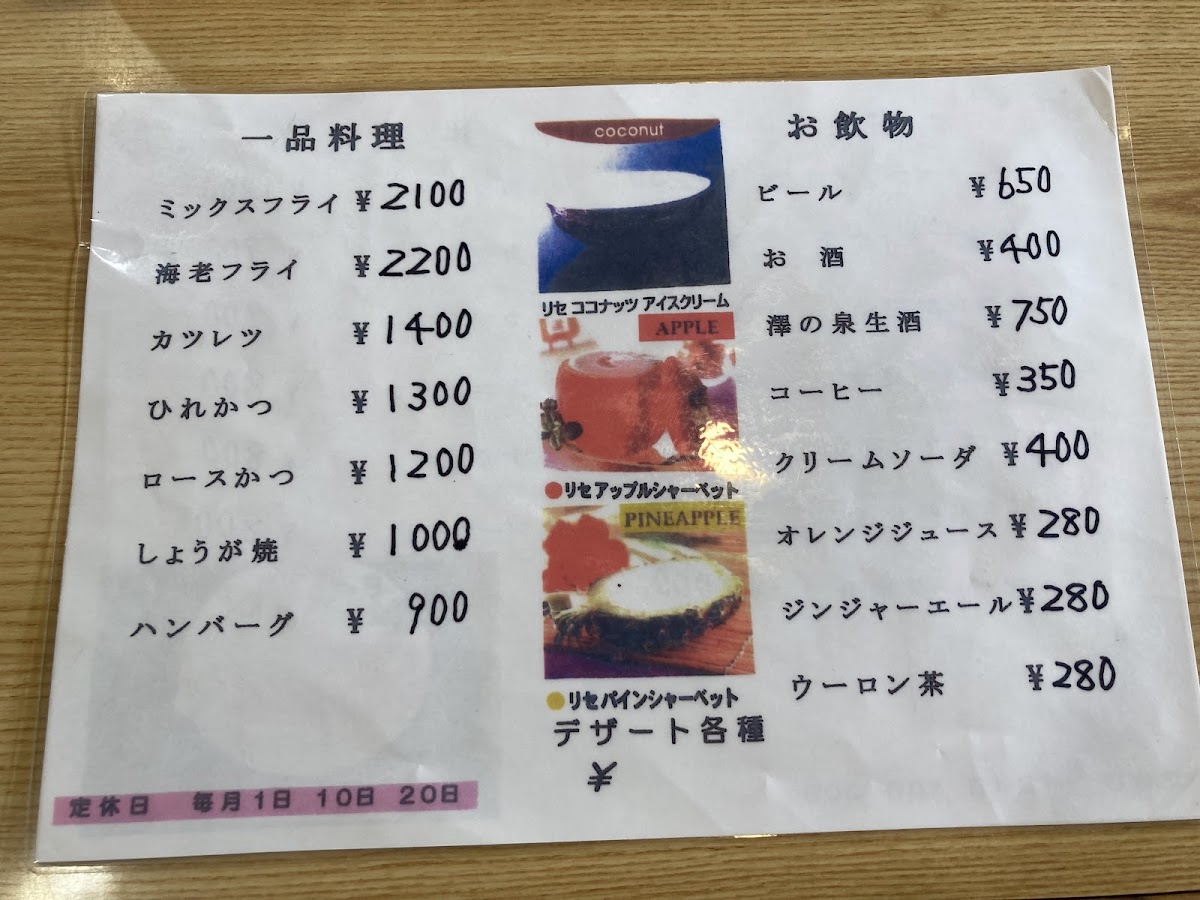 一品料理
ミックスフライ ¥2100
海老フライ ¥2200
カツレツ ¥1400
ひれかつ ¥1300
ロースかつ ¥1200
しょうが焼 ¥1000
ハンバーグ ¥900
定休日 毎月1日 10日 20日
coconut
リセ ココナッツ アイスクリーム
APPLE
●リセ アップルシャーベット
PINEAPPLE
●リセ パインシャーベット
デザート各種
¥
お飲物
ビール ¥650
お酒 ¥400
澤の泉生酒 ¥750
コーヒー ¥350
クリームソーダ ¥400
オレンジジュース ¥280
ジンジャーエール ¥280
ウーロン茶 ¥280